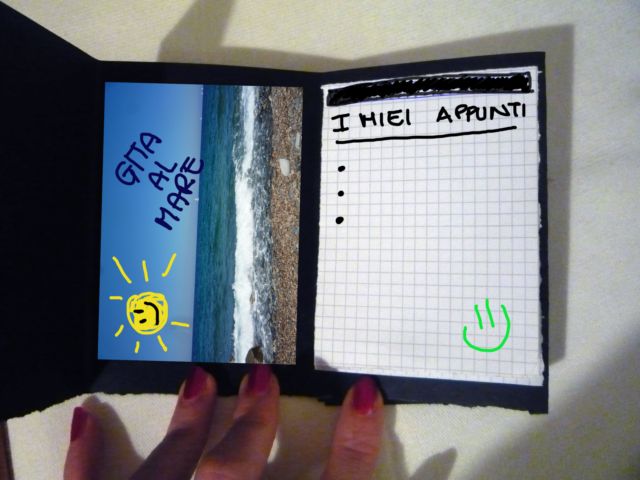 GITA
AL
MARE
I MIEI APPUNTI